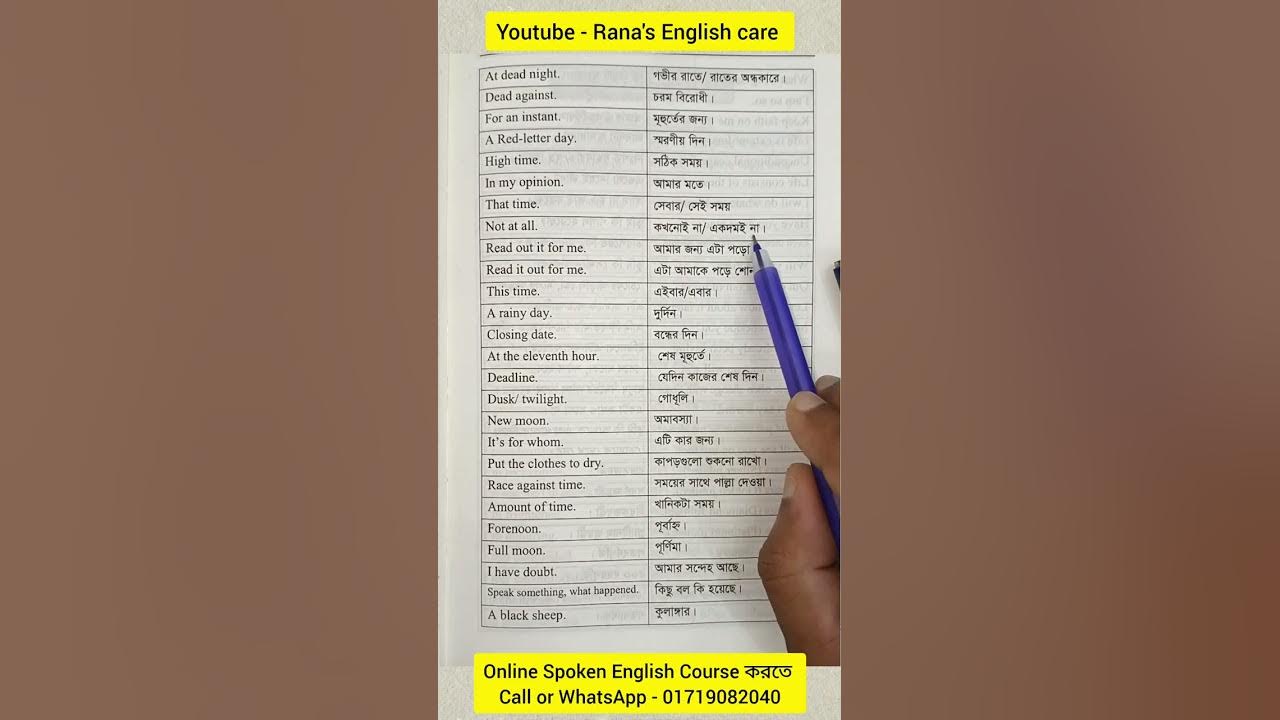 Youtube - Rana's English care
At dead night. গভীর রাতে/ রাতের অন্ধকারে।
Dead against. চরম বিরোধী।
For an instant. মূহুর্তের জন্য।
A Red-letter day. স্মরণীয় দিন।
High time. সঠিক সময়।
In my opinion. আমার মতে।
That time. সেবার/ সেই সময়
Not at all. কখনোই না/ একদমই না।
Read out it for me. আমার জন্য এটা পড়ো
Read it out for me. এটা আমাকে পড়ে
This time. এইবার/এবার।
A rainy day. দুর্দিন।
Closing date. বন্ধের দিন।
At the eleventh hour. শেষ মূহুর্তে।
Deadline. যেদিন কাজের শেষ দিন।
Dusk/ twilight. গোধূলি।
New moon. অমাবস্যা।
It's for whom. এটি কার জন্য।
Put the clothes to dry. কাপড়গুলো শুকনো রাখো।
Race against time. সময়ের সাথে পাল্লা দেওয়া।
Amount of time. খানিকটা সময়।
Forenoon. পূর্বাহ্ন।
Full moon. পূর্ণিমা।
I have doubt. আমার সন্দেহ আছে।
Speak something, what happened. কিছু বল কি হয়েছে।
A black sheep. কুলাঙ্গার।
Online Spoken English Course করতে
Call or WhatsApp - 01719082040